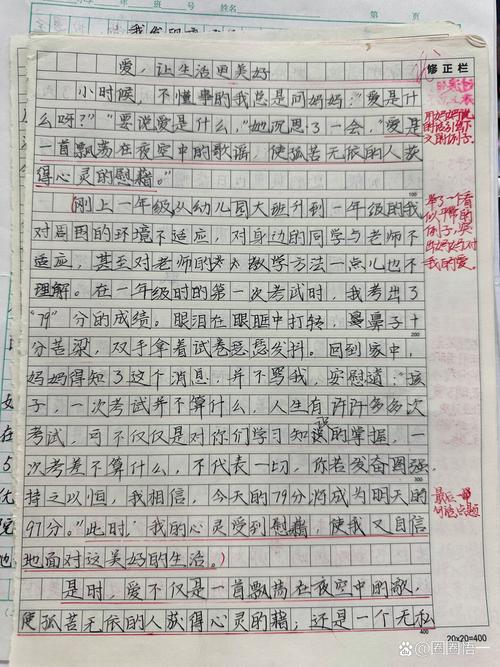 爱，让生活更美好
小时候，不懂事的我总是问妈妈："爱是什
么呀？""要说爱是什么，"她沉思了一会，"爱是
一首飘荡在夜空中的歌谣，使孤苦无依的人获
得心灵的慰藉。"
刚上一年级，从幼儿园大班升到一年级的我
对周围的环境不适应，对身边的同学与老师不
适应，甚至对老师的教学方法一点儿也不
理解。在一年级时的第一次考试时，我考出了
"79"分的成绩。眼泪在眼眶中打转，鼻子十
分苦涩，双手拿着试卷瑟瑟发抖。回到家中，
妈妈得知了这个消息，并不骂我，安慰道："孩
子，一次考试并不算什么，人生有许许多多次
考试，可不仅仅是对你们学习知识的掌握，一
次考差不算什么，不代表一切，你若发奋图强，
持之以恒，我相信，今天的79分将成为明天的
97分。"此时，我的心灵受到慰藉，使我又自信
地面对这美好的生活。）
是时，爱不仅是一首飘荡在夜空中的歌，
使孤苦无依的人获得心灵的藉；还是一个无私
修正栏
举了一个看
似平常的
例子，突
出妈妈对
我的爱。
最后一句
点题
100
200
300
400
20×20=400
校
班
号
姓名
第
页
圈圈悟一